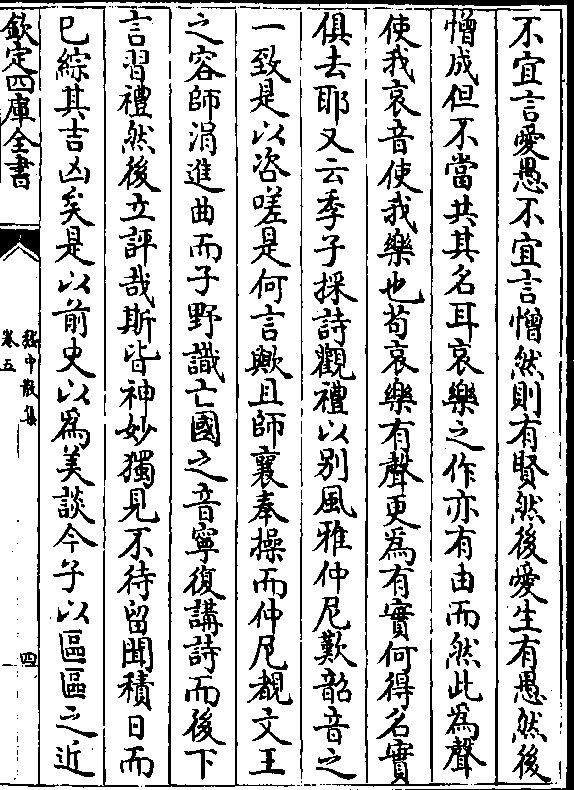 不宜言愛愚不宜言憎然則有賢然後愛生有愚然後
憎成但不當共其名耳哀樂之作亦有由而然此為聲
使我哀音使我樂也苟哀樂有聲更為有實何得名實
俱去耶又云季子採詩觀禮以别風雅仲尼歎韶音之
一致是以咨嗟是何言歟且師襄奉操而仲尼覩文王
之容師涓進曲而子野識亡國之音寧復講詩而後下
言習禮然後立評哉斯皆神妙獨見不待留聞積日而
已綜其吉凶矣是以前史以為美談今子以區區之近
欽定四庫全書
嵇中散集
卷五
四